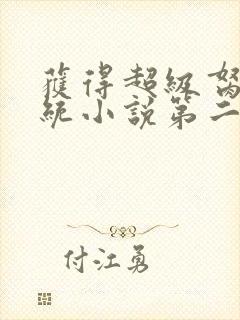 獲得超級
統小說第二
付江勇